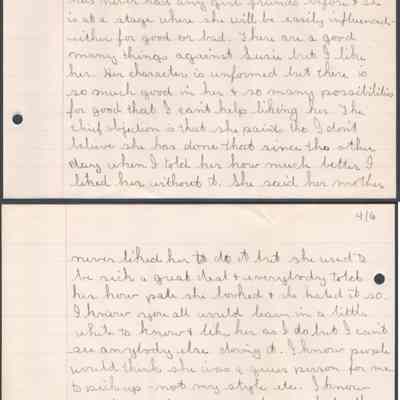 has never had any girl friends before & she
is at a stage where she will be easily influenced -
either for good or bad. There are a good
many things against Susie but I like
her. Her character is unformed but there is
so much good in her & so many possibilities
for good that I can't help liking her. The
chief objection is that she paints tho I don't
believe she has done that since the other
day when I told her how much better I
liked her without it. She said her mother
4/6
never liked her to do it but she used to
be sick a great deal & everybody told
her how pale she looked & she hated it so.
I know you all would learn in a little
while to know & like her as I do but I can't
see anybody else doing it. I know people
would think she was a queer person for me
to pick up - not my style etc. I know